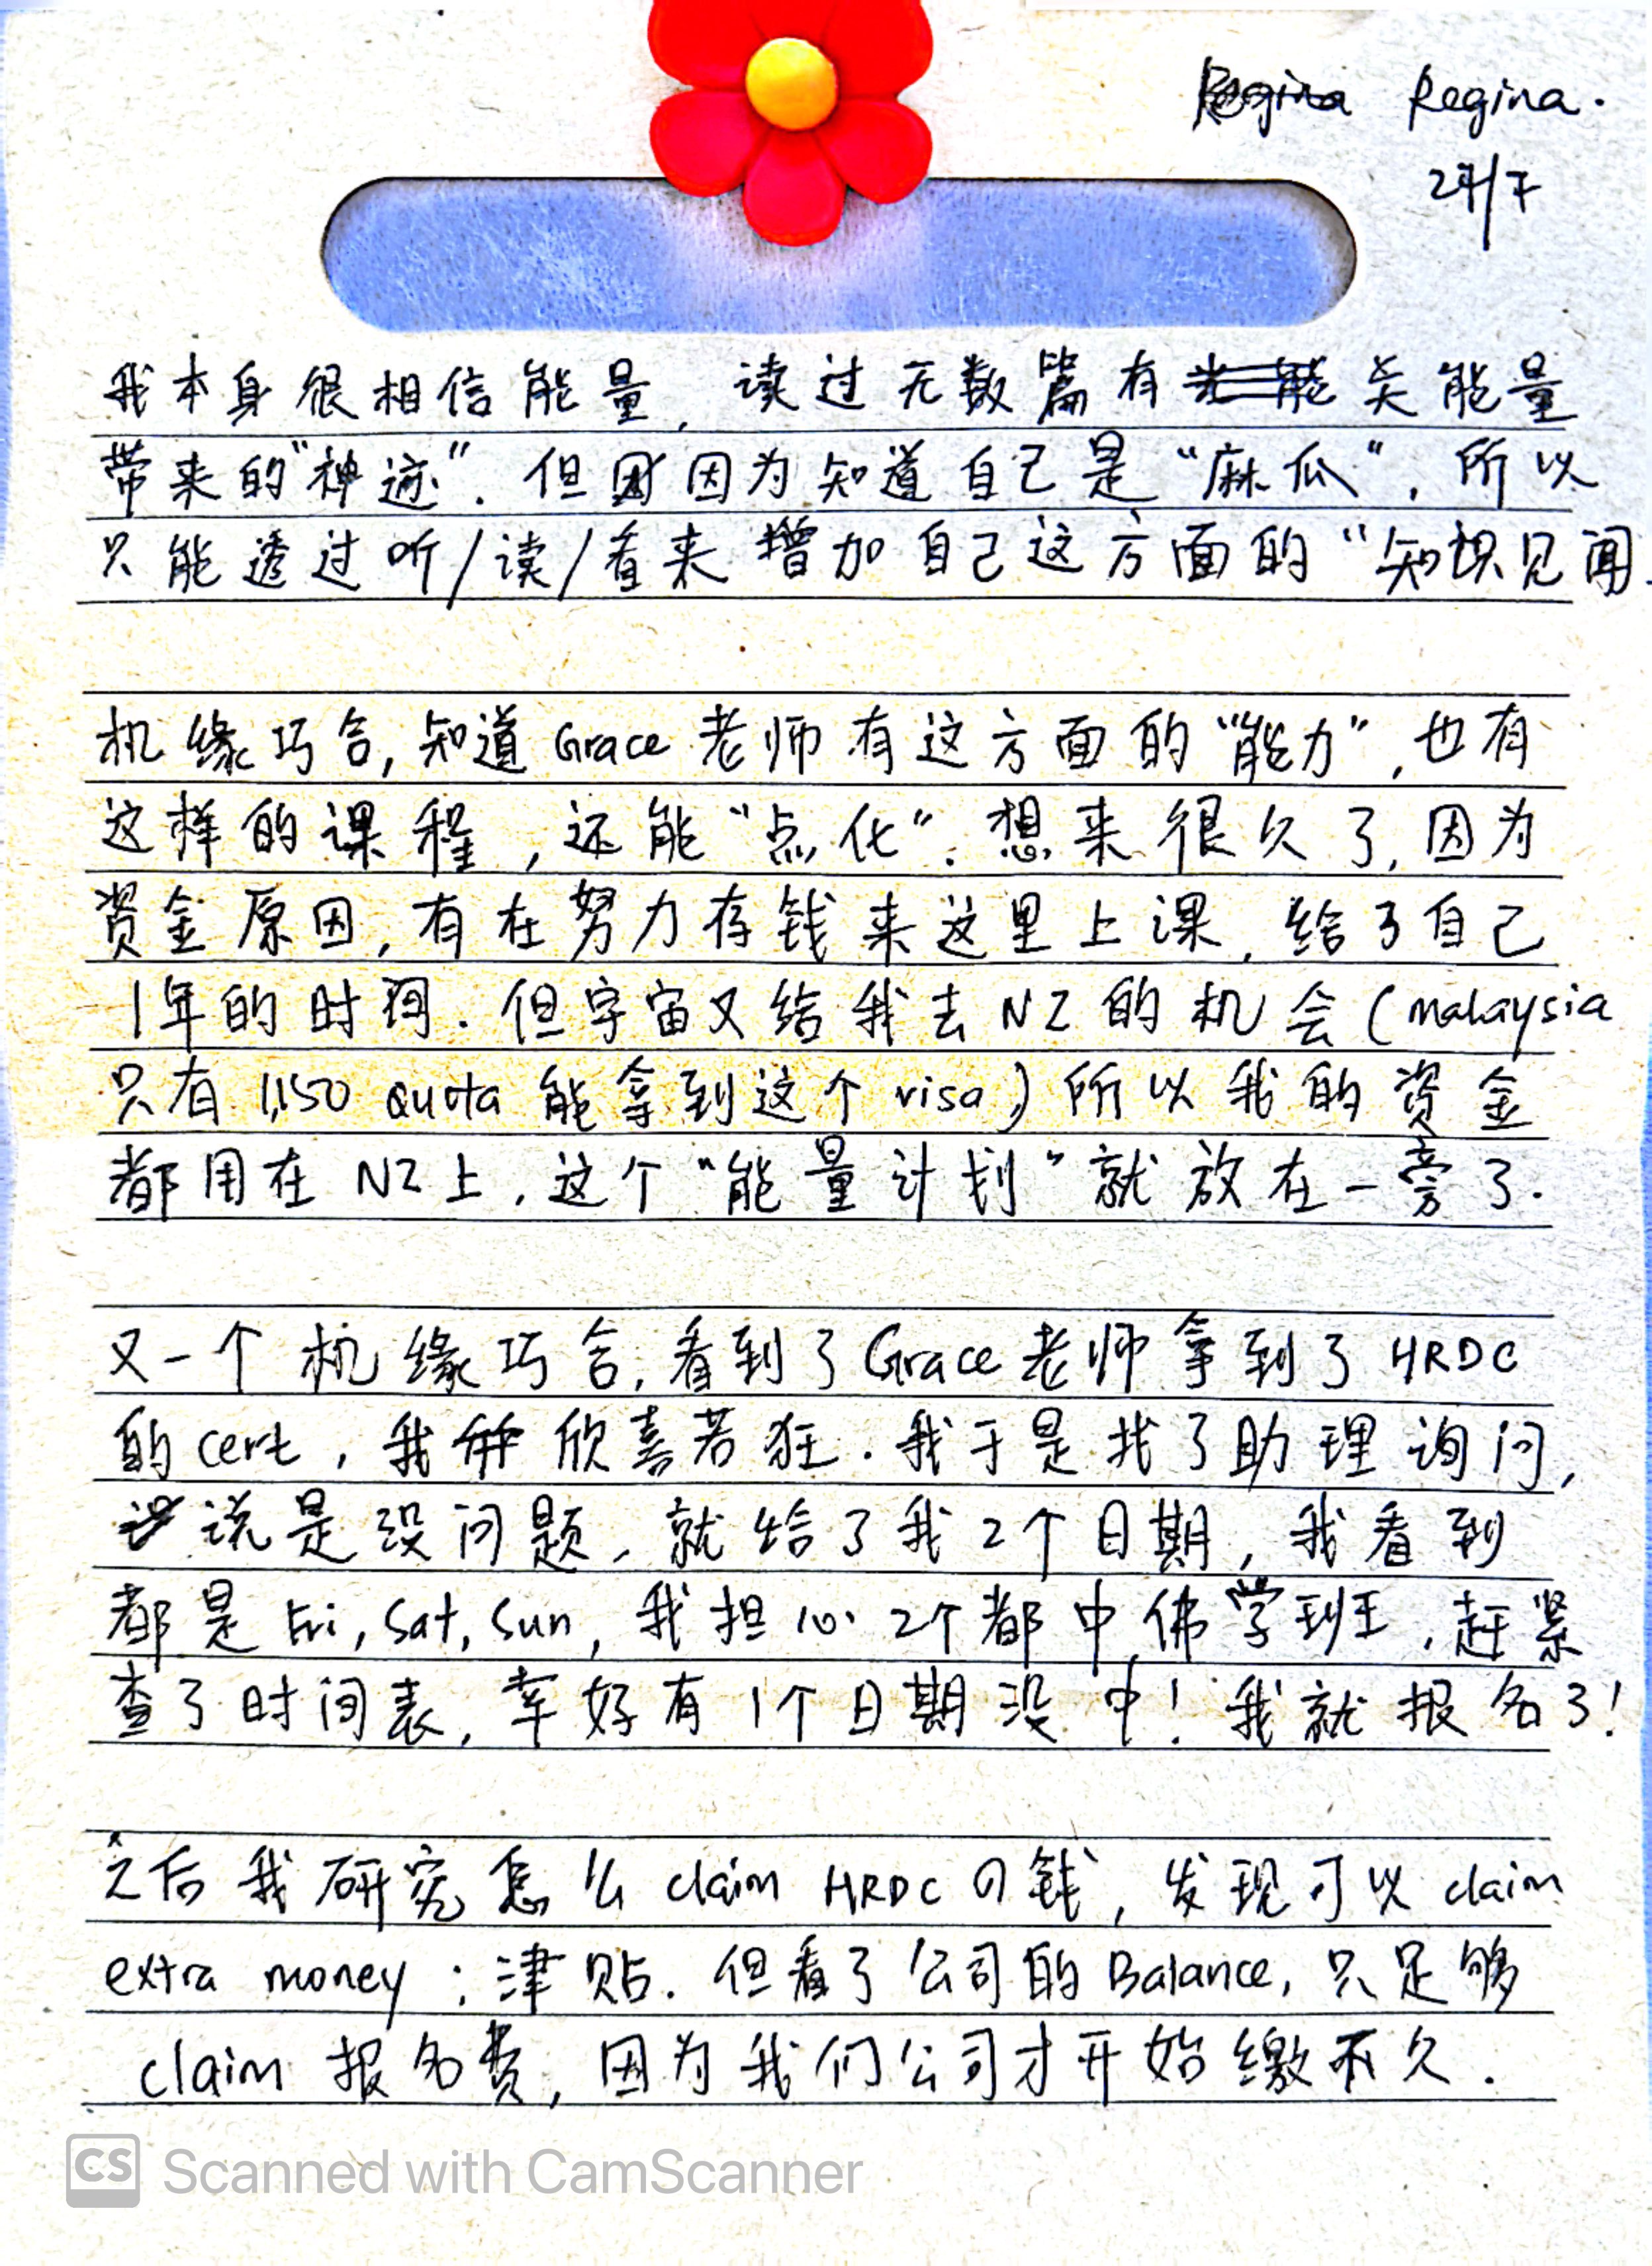 Regina Regina.
27/7
我本身很相信能量, 读过无数篇有关能量
带来的"神迹". 但因为知道自己是"麻瓜", 所以
只能透过听/读/看来增加自己这方面的"知识见闻.
机缘巧合, 知道Grace老师有这方面的"能力", 也有
这样的课程, 还能"点化". 想来很久了, 因为
资金原因, 有在努力存钱来这里上课, 给了自己
1年的时间. 但宇宙又给我去NZ的机会(malaysia
只有1,150 quota能拿到这个visa,) 所以我的资金
都用在NZ上, 这个"能量计划"就放在一旁了.
又一个机缘巧合, 看到了Grace老师拿到了HRDC
的cert, 我欣喜若狂. 我于是找了助理询问,
说是没问题, 就给了我2个日期, 我看到
都是Fri, Sat, Sun, 我担心2个都中佛学班, 赶紧
查了时间表, 幸好有1个日期没中! 我就报名了!
之后我研究怎么claim HRDC の钱, 发现可以claim
extra money : 津贴. 但看了公司的Balance, 只足够
claim 报名费, 因为我们公司才开始缴不久.
CS Scanned with CamScanner